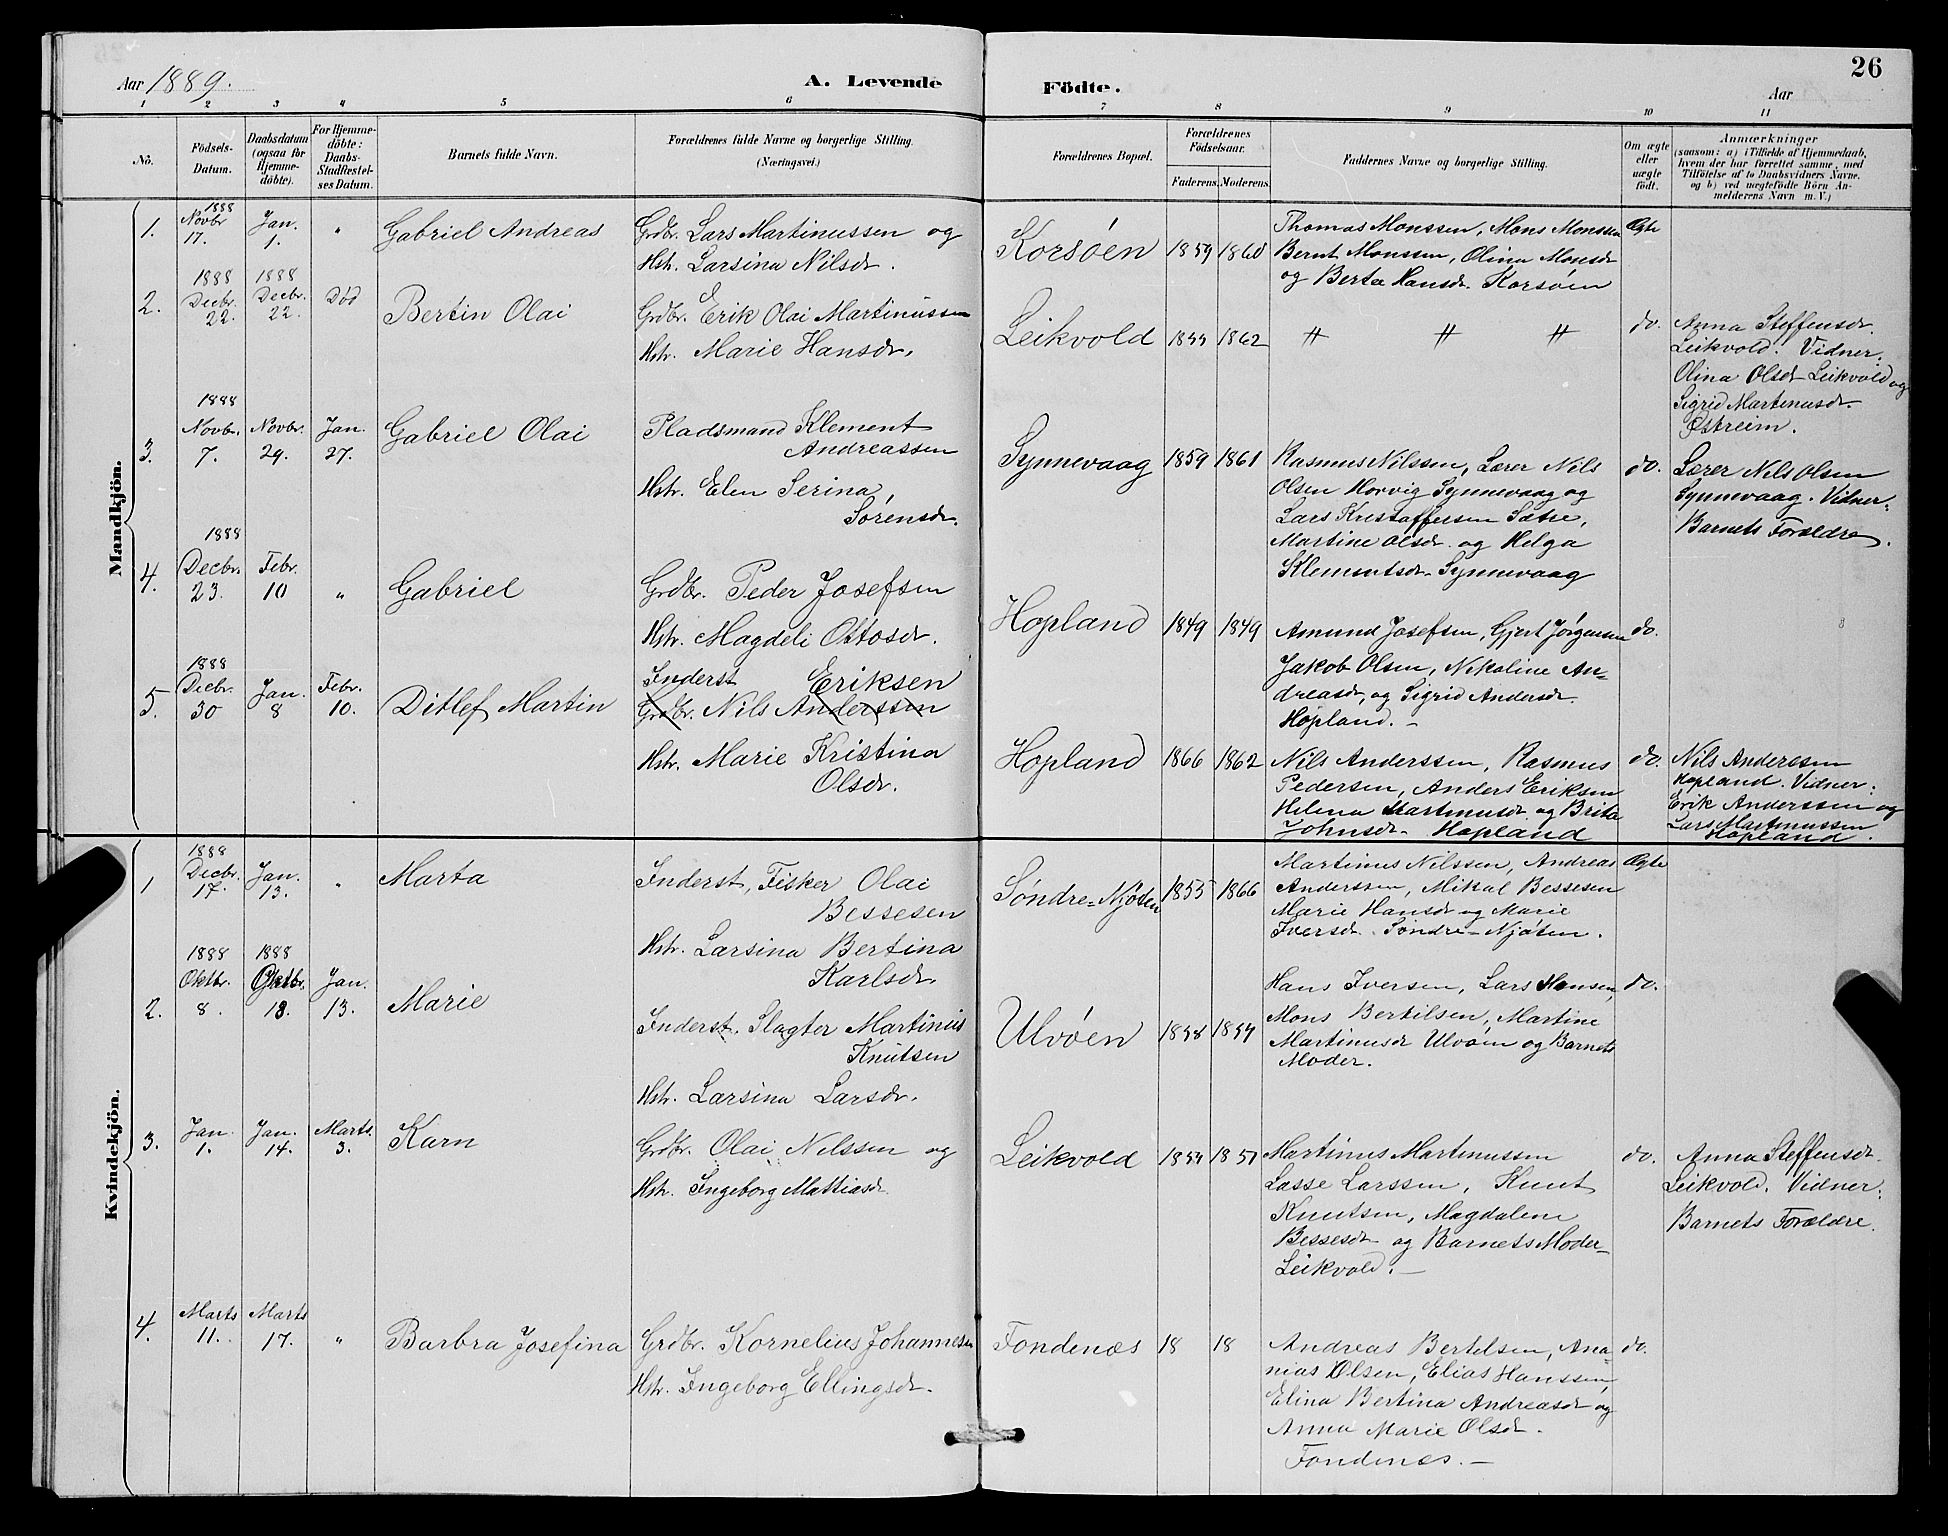 26
Aar 1889.
A. Levende Födte.
Aar
1 2 3 4 5 6 7 8 9 10 11
No.
Födsels-Datum.
Daabsdatum (ogsaa for Hjemme-döbte).
For Hjemme-döbte: Daabs-Stadfæstel-ses Datum.
Barnets fulde Navn.
Forældrenes fulde Navne og borgerlige Stilling.
(Næringsvei.)
Forældrenes Bopæl.
Forældrenes Födselsaar.
Faderens. Moderens.
Faddernes Navne og borgerlige Stilling.
Om ægte eller uægte födt.
Anmærkninger
(saasom: a) i Tilfælde af Hjemmedaab,
hvem der har forrettet samme, med
Tilföielse af to Daabsvidners Navne.
og b) ved uægtefödte Börn An-
melderens Navn m. V.)
Mandkjön.
1.
1888
Novbr.
17.
Jan.
1.
"
Gabriel Andreas
Grdbr. Lars Martinussen og
Hstr. Larsina Nilsdr.
Korsøen
1859
1860
Thomas Monssen, Mons Monssen
Bernt Monssen, Olina Monsdr
og Berta Hansdr. Korsøen
Ægte
2.
1888
Decbr.
22.
1888
Decbr.
22.
Død
Bertin Olai
Grdbr. Erik Olai Martinussen
Hstr. Marie Hansdr.
Leikvold
1855
1862
" " "
do.
Anna Steffensdr.
Leikvold. Vidner:
Olina Olsdr Leikvold og
Sigrid Martinusdr.
Østreim.
3.
1888
Novbr.
7.
Novbr.
29.
Jan.
27.
Gabriel Olai
Pladsmand Klement
Andreassen
Hstr. Elen Serina
Sørensdr.
Synnevaag
1859
1861
Rasmus Nilssen, Lærer Nils
Olsen Horvig Synnevaag og
Lars Kristoffersen Sætre,
Martine Olsdr. og Helga
Klementsdr. Synnevaag
do.
Lærer Nils Olsen
Synnevaag. Vidner:
Barnets Forældre.
4.
1888
Decbr.
23.
Febr.
10
"
Gabriel
Grdbr. Peder Josefsen
Hstr. Magdeli Ottosdr.
Hopland
1849
1849
Amund Josefsen, Gjert Jørgensen
Jakob Olsen, Nikoline An=
dreasdr, og Sigrid Andersdr.
Hopland. –
do.
5.
1888
Decbr.
30
Jan.
8
Febr.
10.
Ditlef Martin
Inderst Eriksen
Grdbr. Nils Anderssen
Hstr. Marie Kristina
Olsdr.
Hopland
1866
1862
Nils Anderssen, Rasmus
Pedersen, Anders Eriksen
Helena Martinusdr. og Brita
Johnsdr. Hopland
do.
Nils Anderssen
Hopland. Vidner:
Erik Anderssen og
Lars Martinussen
Hopland.
Kvindekjön.
1
1888
Decbr.
17.
Jan.
13.
"
Marta
Inderst, Fisker Olai
Bessesen
Hstr. Larsina Bertina
Karlsdr.
Søndre=Njøten
1855
1866
Martinus Nilssen, Andreas
Anderssen, Mikal Bessesen
Marie Hansdr og Marie
Iversdr. Søndre-Njøten.
Ægte
2.
1888
Oktbr.
8.
1888
Oktbr.
13.
Jan.
13.
Marie
Inderst. Slagter Martinus
Knutsen
Hstr. Larsina Larsdr.
Ulvøen
1858
1854
Hans Iversen, Lars Hansen,
Mons Bertilsen, Martine
Martinusdr Ulvøen og Barnets
Moder.
do.
3.
Jan.
1.
Jan.
14.
Marts.
3.
Karn
Grdbr. Olai Nilssen og
Hstr. Ingeborg Mattiasdr.
Leikvold
1854
1851
Martinus Martinussen
Lasse Larssen, Knut
Knutsen, Magdalene
Bessesdr og Barnets Moder-
Leikvold. –
do.
Anna Steffensdr.
Leikvold. Vidner:
Barnets Forældre.
4.
Marts
11.
Marts
17.
"
Barbra Josefina
Grdbr. Kornelius Johannesen
Hstr. Ingeborg Ellingsdr.
Fondenæs
18
18
Andreas Bertelsen, Ana=
nias Olsen, Elias Hanssen,
Elina Bertina Andreasdr og
Anna Marie Olsdr.
Fondenæs. –
do.